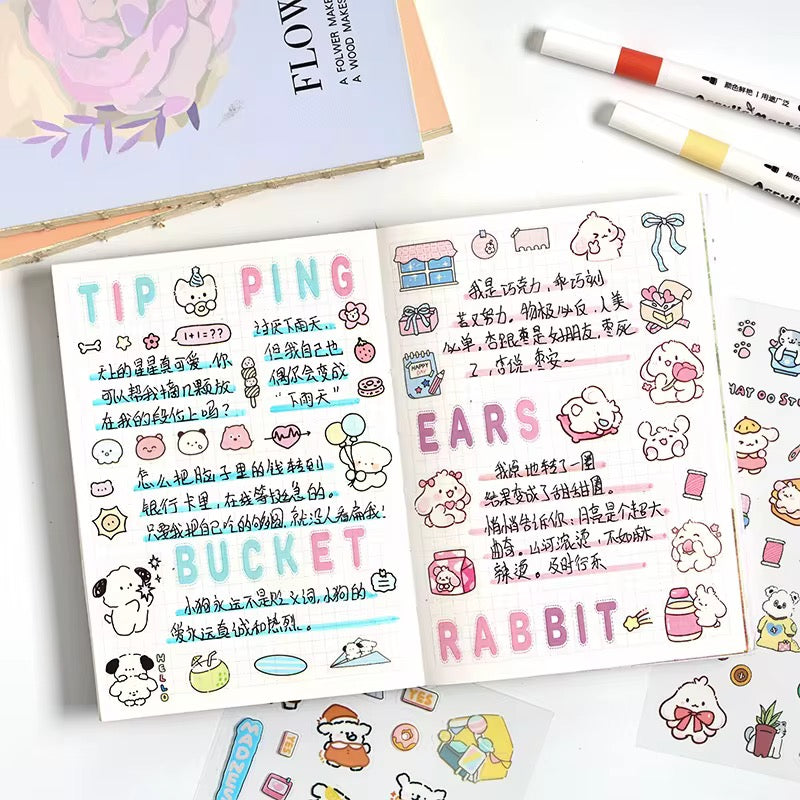 FLOW
A FOLWER MAKE
A WOOD MAKES
颜色鲜艳 | 用途广泛
TIP PING
1+1=??
讨厌下雨天,
但我自己也
偶尔会变成
“下雨天”
天上的星星真可爱,你
可以帮我摘几颗放
在我的段位上吗?
怎么把脑子里的钱转到
银行卡里,在线等挺急的。
只要我把自己吃的够圆,就没人看扁我!
BUCKET
小狗永远不是贬义词,小狗的
爱永远真诚和热烈。
HELLO
我是巧克力,乖巧刻
苦又努力。物极必反,人美
必单,李跟枣是好朋友,枣死
了,李说,枣安~
HAPPY
EARS
我原地转了一圈
结果变成了甜甜圈。
悄悄告诉你:月亮是个超大
曲奇。山河滚烫,不如麻
辣烫。及时行乐
RABBIT
MAY OO STU
YES
YES
MADNES